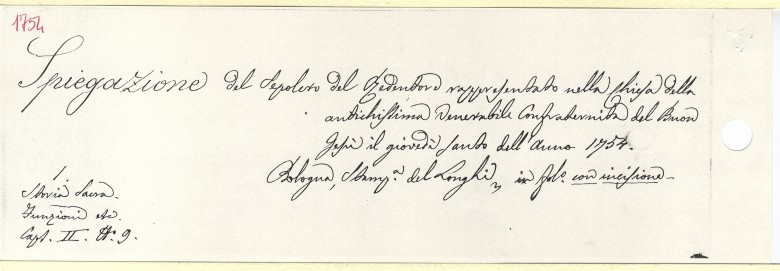 1754
Spiegazione del Sepolcro del Redentore rappresentato nella Chiesa della
antichissima Venerabile Confraternità del Buon
Gesù il giovedì santo dell'anno 1754.
Bologna, Stampª. del Longhi, in folº. con incisione.
1.
Storia Sacra.
Funzioni etc.
Capt. II. Nº. 9.